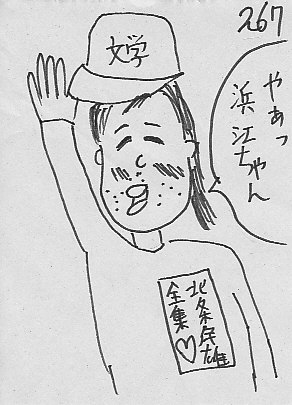 267
やあっ
浜江ちゃん
文学
北条民雄
全集♡